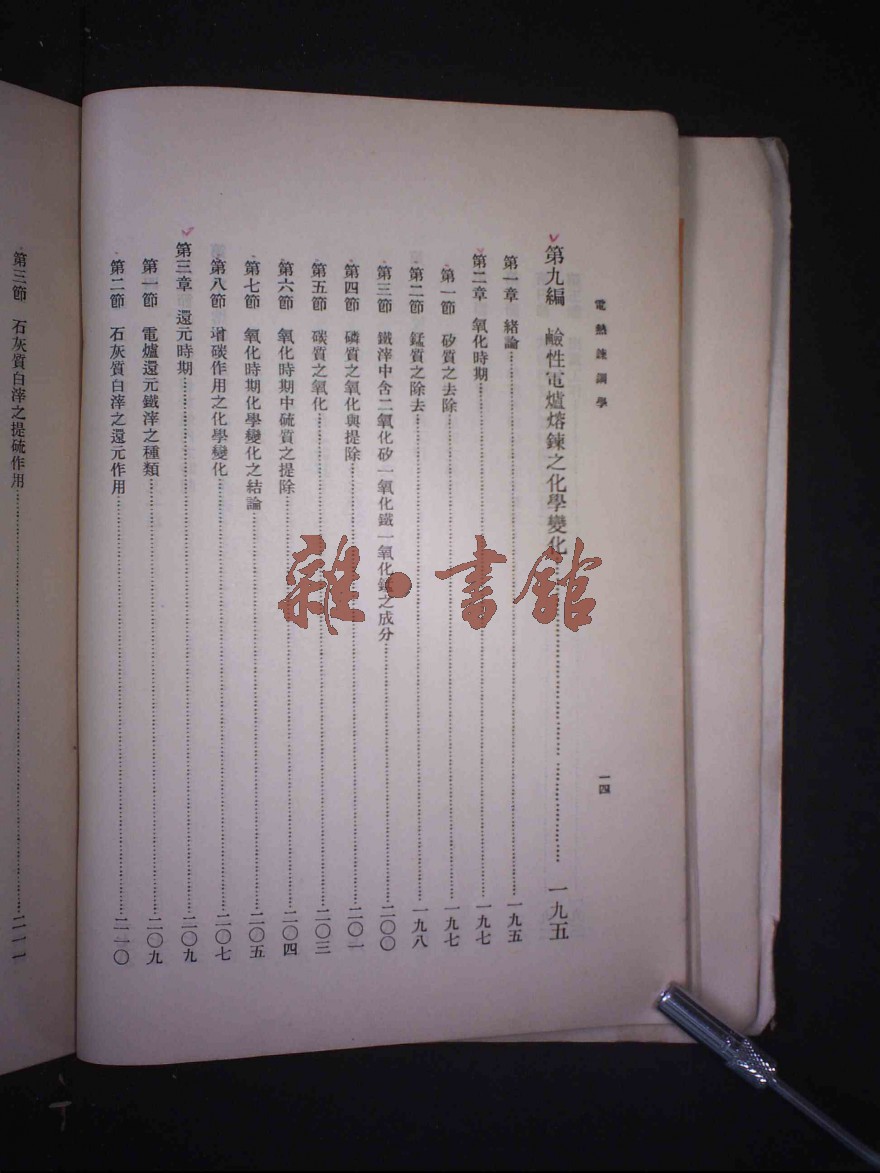 電熱鍊鋼學
一四
第九編 鹼性電爐熔鍊之化學變化 一九五
第一章 緒論 一九五
第二章 氧化時期 一九七
第一節 矽質之去除 一九七
第二節 錳質之除去 一九八
第三節 鐵滓中含二氧化矽一氧化鐵一氧化錳之成分 二〇〇
第四節 磷質之氧化與提除 二〇一
第五節 碳質之氧化 二〇三
第六節 氧化時期中硫質之提除 二〇四
第七節 氧化時期化學變化之結論 二〇五
第八節 增碳作用之化學變化 二〇七
第三章 還元時期 二〇九
第一節 電爐還元鐵滓之種類 二〇九
第二節 石灰質白滓之還元作用 二一〇
第三節 石灰質白滓之提硫作用 二一一
雜·書館